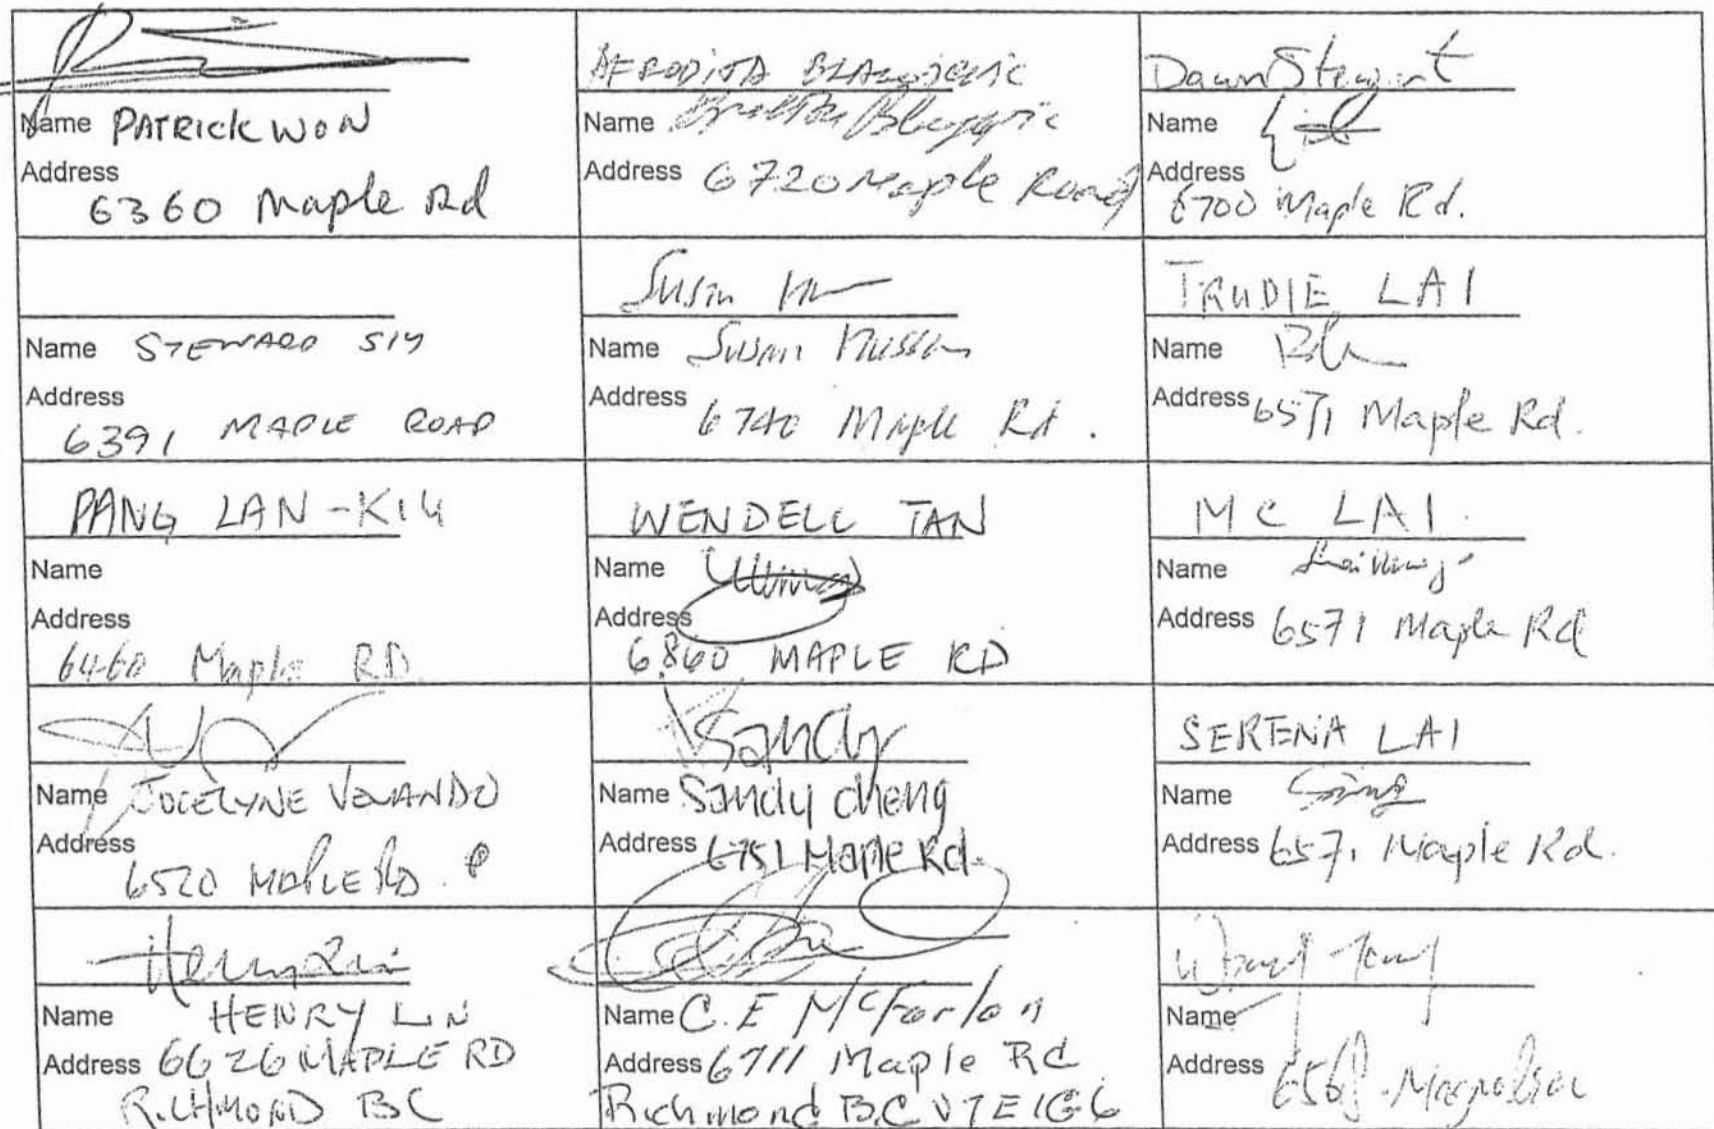 Name PATRICK WON
Address
6360 Maple Rd
AFRODITA BLAGOJEVIC
Name
Address 6720 Maple Road
Dawn Stewart
Name
Address
6700 Maple Rd.
Name STEWARD SIY
Address
6391 MAPLE ROAD
Susan
Name Susan
Address 6740 Maple Rd.
TRUDIE LAI
Name
Address 6571 Maple Rd.
PANG LAN-KIU
Name
Address
6460 Maple RD.
WENDELL TAN
Name
Address
6860 MAPLE RD
MC LAI.
Name
Address 6571 Maple Rd
Name JOCELYNE
Address
6520 MAPLE RD.
Sandy
Name Sandy cheng
Address 6751 Maple Rd.
SERENA LAI
Name
Address 6571 Maple Rd.
Henry Lin
Name HENRY LIN
Address 6626 MAPLE RD
RICHMOND BC
Name C.E McFarlan
Address 6711 Maple Rd
Richmond B.C V7E1G6
Name
Address Magnolia